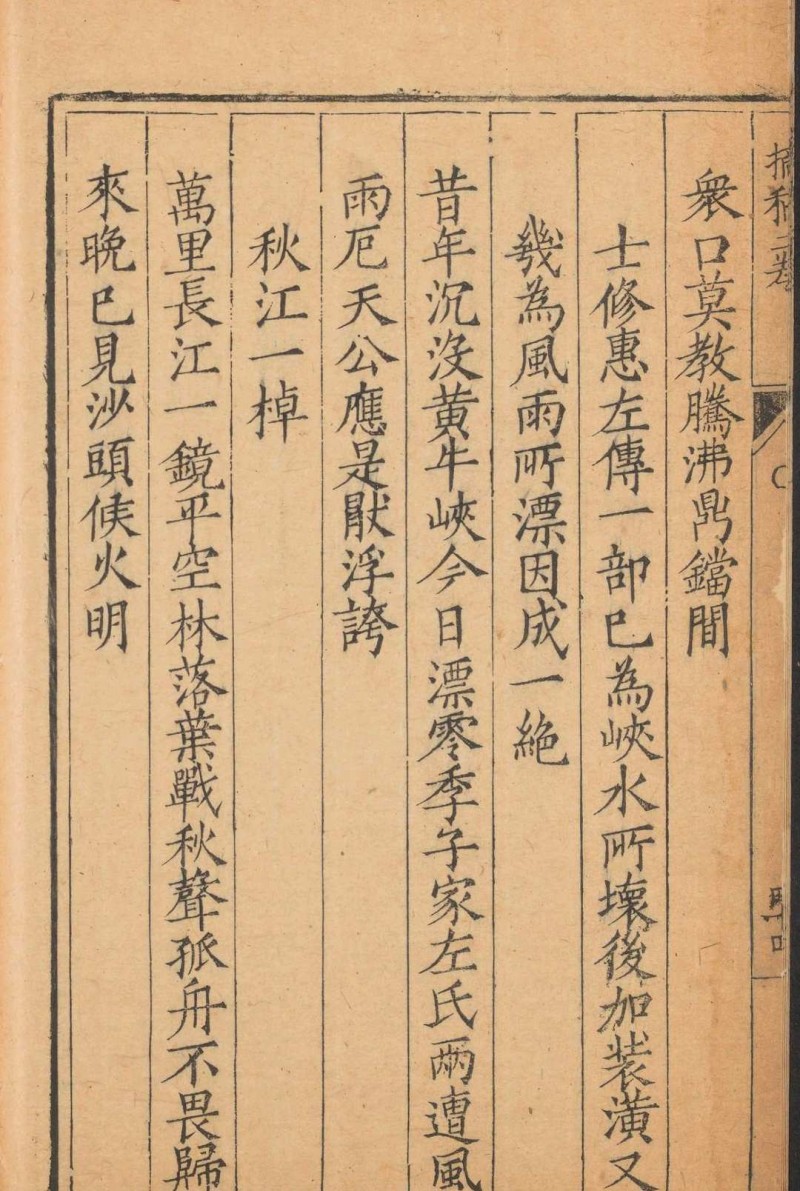 摘稿二卷
衆口莫教騰沸鼎鐺間
士修惠左傳一部已為峽水所壞後加装潢又
幾為風雨所漂因成一絶
昔年沉沒黄牛峽今日漂零季子家左氏兩遭風
雨厄天公應是猒浮誇
秋江一棹
萬里長江一鏡平空林落葉戰秋聲孤舟不畏歸
來晚已見沙頭候火明